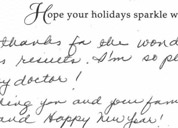 Hope your holidays sparkle w
thanks for the wond
s results. I'm so pl
y doctor!
hing you and your fam
and Happy New Year!